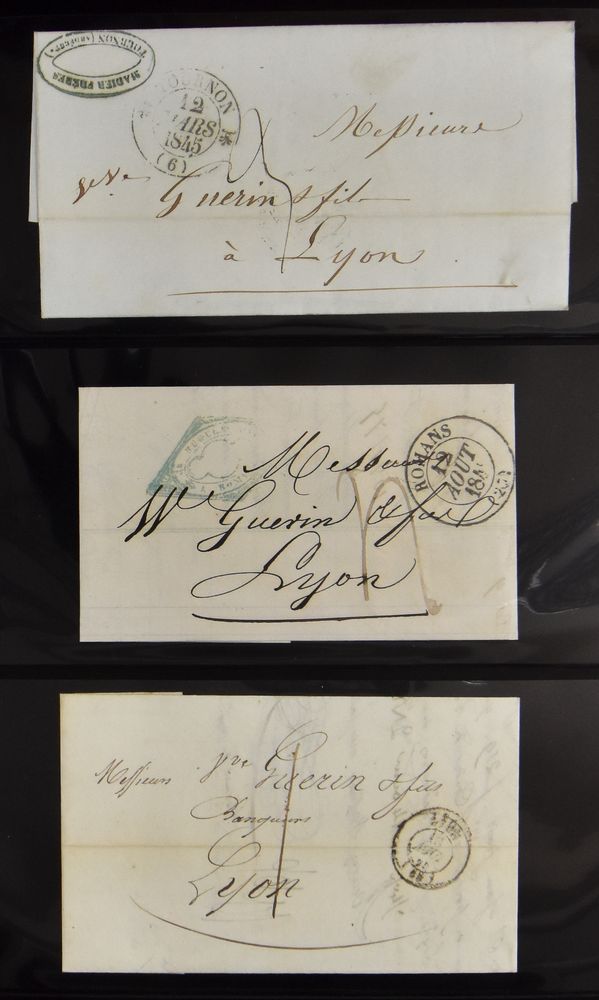 MADIER FRÈRES
TOURNON (ARDÈCHE.)
TOURNON
12
MARS
1845
(6)
Messieurs
Vve Guerin & fils
à Lyon
ROMANS
12
AOUT
184
(25)
Messieurs
Vve Guerin & fils
Lyon
Messieurs Vve Guerin & fils
Banquiers
Lyon
LYON